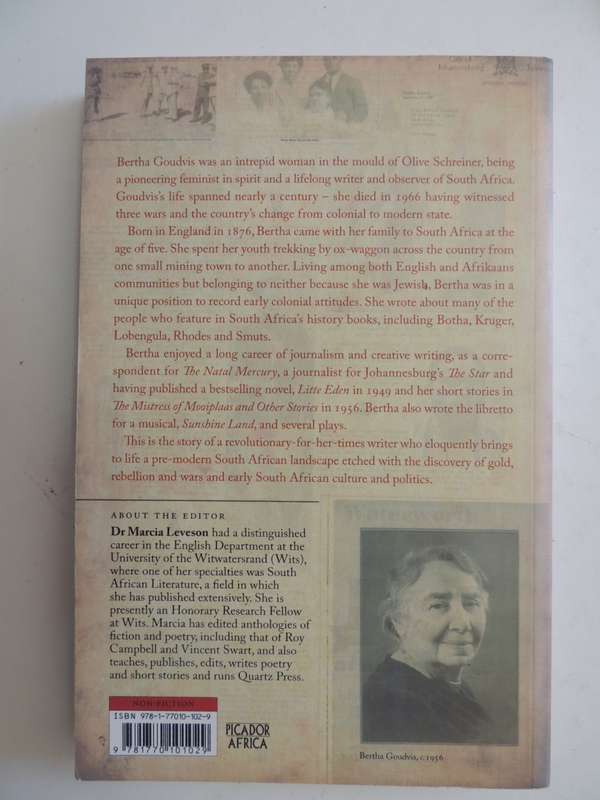 Bertha Goudvis was an intrepid woman in the mould of Olive Schreiner, being
a pioneering feminist in spirit and a lifelong writer and observer of South Africa.
Goudvis's life spanned nearly a century – she died in 1966 having witnessed
three wars and the country's change from colonial to modern state.
Born in England in 1876, Bertha came with her family to South Africa at the
age of five. She spent her youth trekking by ox-waggon across the country from
one small mining town to another. Living among both English and Afrikaans
communities but belonging to neither because she was Jewish, Bertha was in a
unique position to record early colonial attitudes. She wrote about many of the
people who feature in South Africa's history books, including Botha, Kruger,
Lobengula, Rhodes and Smuts.
Bertha enjoyed a long career of journalism and creative writing, as a corre-
spondent for The Natal Mercury, a journalist for Johannesburg's The Star and
having published a bestselling novel, Litte Eden in 1949 and her short stories in
The Mistress of Mooiplaas and Other Stories in 1956. Bertha also wrote the libretto
for a musical, Sunshine Land, and several plays.
This is the story of a revolutionary-for-her-times writer who eloquently brings
to life a pre-modern South African landscape etched with the discovery of gold,
rebellion and wars and early South African culture and politics.
ABOUT THE EDITOR
Dr Marcia Leveson had a distinguished
career in the English Department at the
University of the Witwatersrand (Wits),
where one of her specialties was South
African Literature, a field in which
she has published extensively. She is
presently an Honorary Research Fellow
at Wits. Marcia has edited anthologies of
fiction and poetry, including that of Roy
Campbell and Vincent Swart, and also
teaches, publishes, edits, writes poetry
and short stories and runs Quartz Press.
NON-FICTION
ISBN 978-1-77010-102-9
9 781770 101029
PICADOR
AFRICA
Bertha Goudvis, c.1956